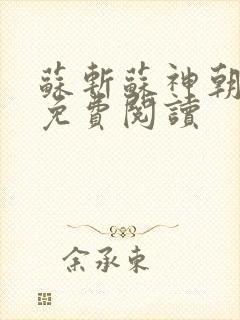 蘇斬蘇神朝
免費閱讀
余承東